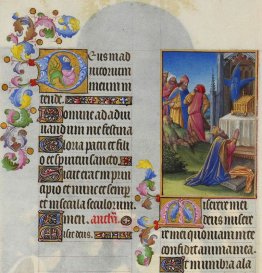 Deus in ad
iutorium
meum in
tende.
Domine ad adiu
uandum me festina
Gloria patri et fi
lio et spiritui sancto.
Sicut erat in prin
cipio et nunc et semp
et in secula seculorum
amen.
Miserere mei
deus misere
re mei quoniam in te
confidit anima mea.
Et in umbra ala